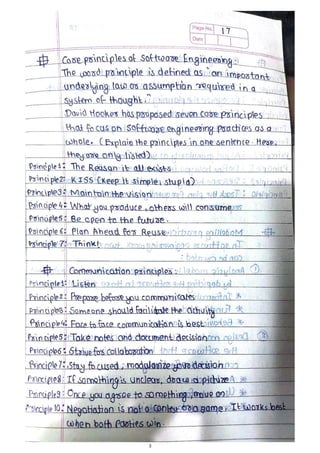 Page No. 17
Date
Core principles of Software Engineering
The word principle is defined as "an important
underlying law or assumption required in a
system of thought."
David Hooker has proposed seven core principles
that focus on software engineering practices as a
whole. (Explain the principles in one sentence. Here,
they are only listed)
Principle 1: The Reason it all exists
Principle 2: KISS (Keep it simple, stupid)
Principle 3: Maintain the vision
Principle 4: What you produce, others will consume
Principle 5: Be open to the future.
Principle 6: Plan Ahead for Reuse
Principle 7: Think!
Communication principles
Principle 1: Listen
Principle 2: Prepare before you communicate
Principle 3: Someone should facilitate the activity
Principle 4: Face to face communication is best
Principle 5: Take notes and document decision
Principle 6: Strive for collaboration
Principle 7: Stay focused, modularize your decision
Principle 8: If something is unclear, draw a picture
Principle 9: Once you agree to something, move on
Principle 10: Negotiation is not a contest or a game. It works best
when both Parties win.